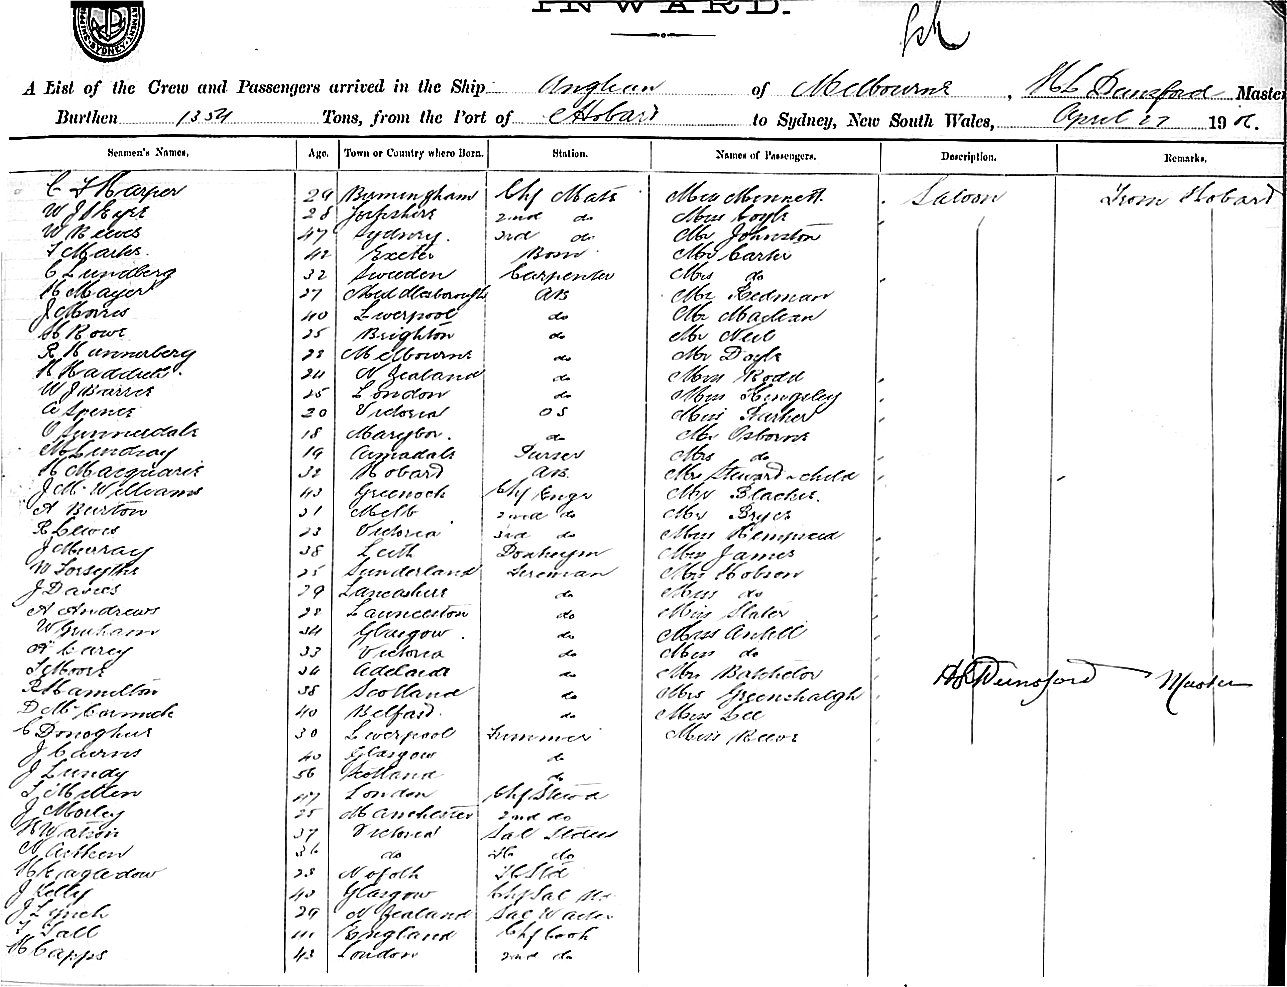 SYDNEY
INWARD.
A List of the Crew and Passengers arrived in the Ship Anglian of Melbourne, H L Dunsford Master
Burthen 1354 Tons, from the Port of Hobart to Sydney, New South Wales, April 27 190
Seamen's Names, Age. Town or Country where Born. Station. Names of Passengers. Description. Remarks.
C F Harper 29 Birmingham Chf Mate Miss Mennett Saloon From Hobart
W J 28 Yorkshire 2nd do Miss Coyle
W Reeves 47 Sydney. 3rd do Mr Johnston
Marks. 42 Exeter Bosn Mr Carter
C Lundberg 32 Sweeden Carpenter Mrs do
H Mayer 27 Middlesborough AB Mr Redman
J Morris 40 Liverpool do Mr Maclean
H Rowe 25 Brighton do Mr Neil
R Hunnerberg 23 Melbourne do Mr Doyle
H 24 N Zealand do Miss Rodd
W J 25 London do Miss Kingsley
A Spence 20 Victoria OS Miss Barker
18 Marybor. do Mr Osborne
M Lindsay 19 Armadale Purser Mrs do
H Macquarie 32 Hobard AB Mrs Steward & child
J McWilliams 43 Greenock Chf Engr Mr
A Burton 31 Melb 2nd do Mrs Bryer
R Lewis 23 Victoria 3rd do Miss
J Murray 38 Leith Donkeym Miss James
W Forsythe 25 Sunderland Fireman Mrs Hobson
J Davies 29 Lancashire do Miss do
A Andrews 28 Launceston do Miss Slater
W Graham 34 Glasgow. do Miss Antill
Carey 33 Victoria do Miss do
Moore 34 Adelaide do Mrs Batchelor
R Hamilton 38 Scotland do Mrs Greenhalgh HLDunsford Master
D McCormick 40 Belfast. do Miss Lee
C Donoghue 30 Liverpool Trimmer Miss Reeve
J Cairns 40 Glasgow do
J Lundy 56 Scotland do
47 London Chf Stewd
J Morley 25 Manchester 2nd do
H Watson 37 Victoria Sal
N Aitken 36 do do
23 Nofolk
J Kelly 42 Glasgow Chf Sal
J Lynch 29 N Zealand Sal Waiter
England Chf Cook
H Capps 43 London 2nd do